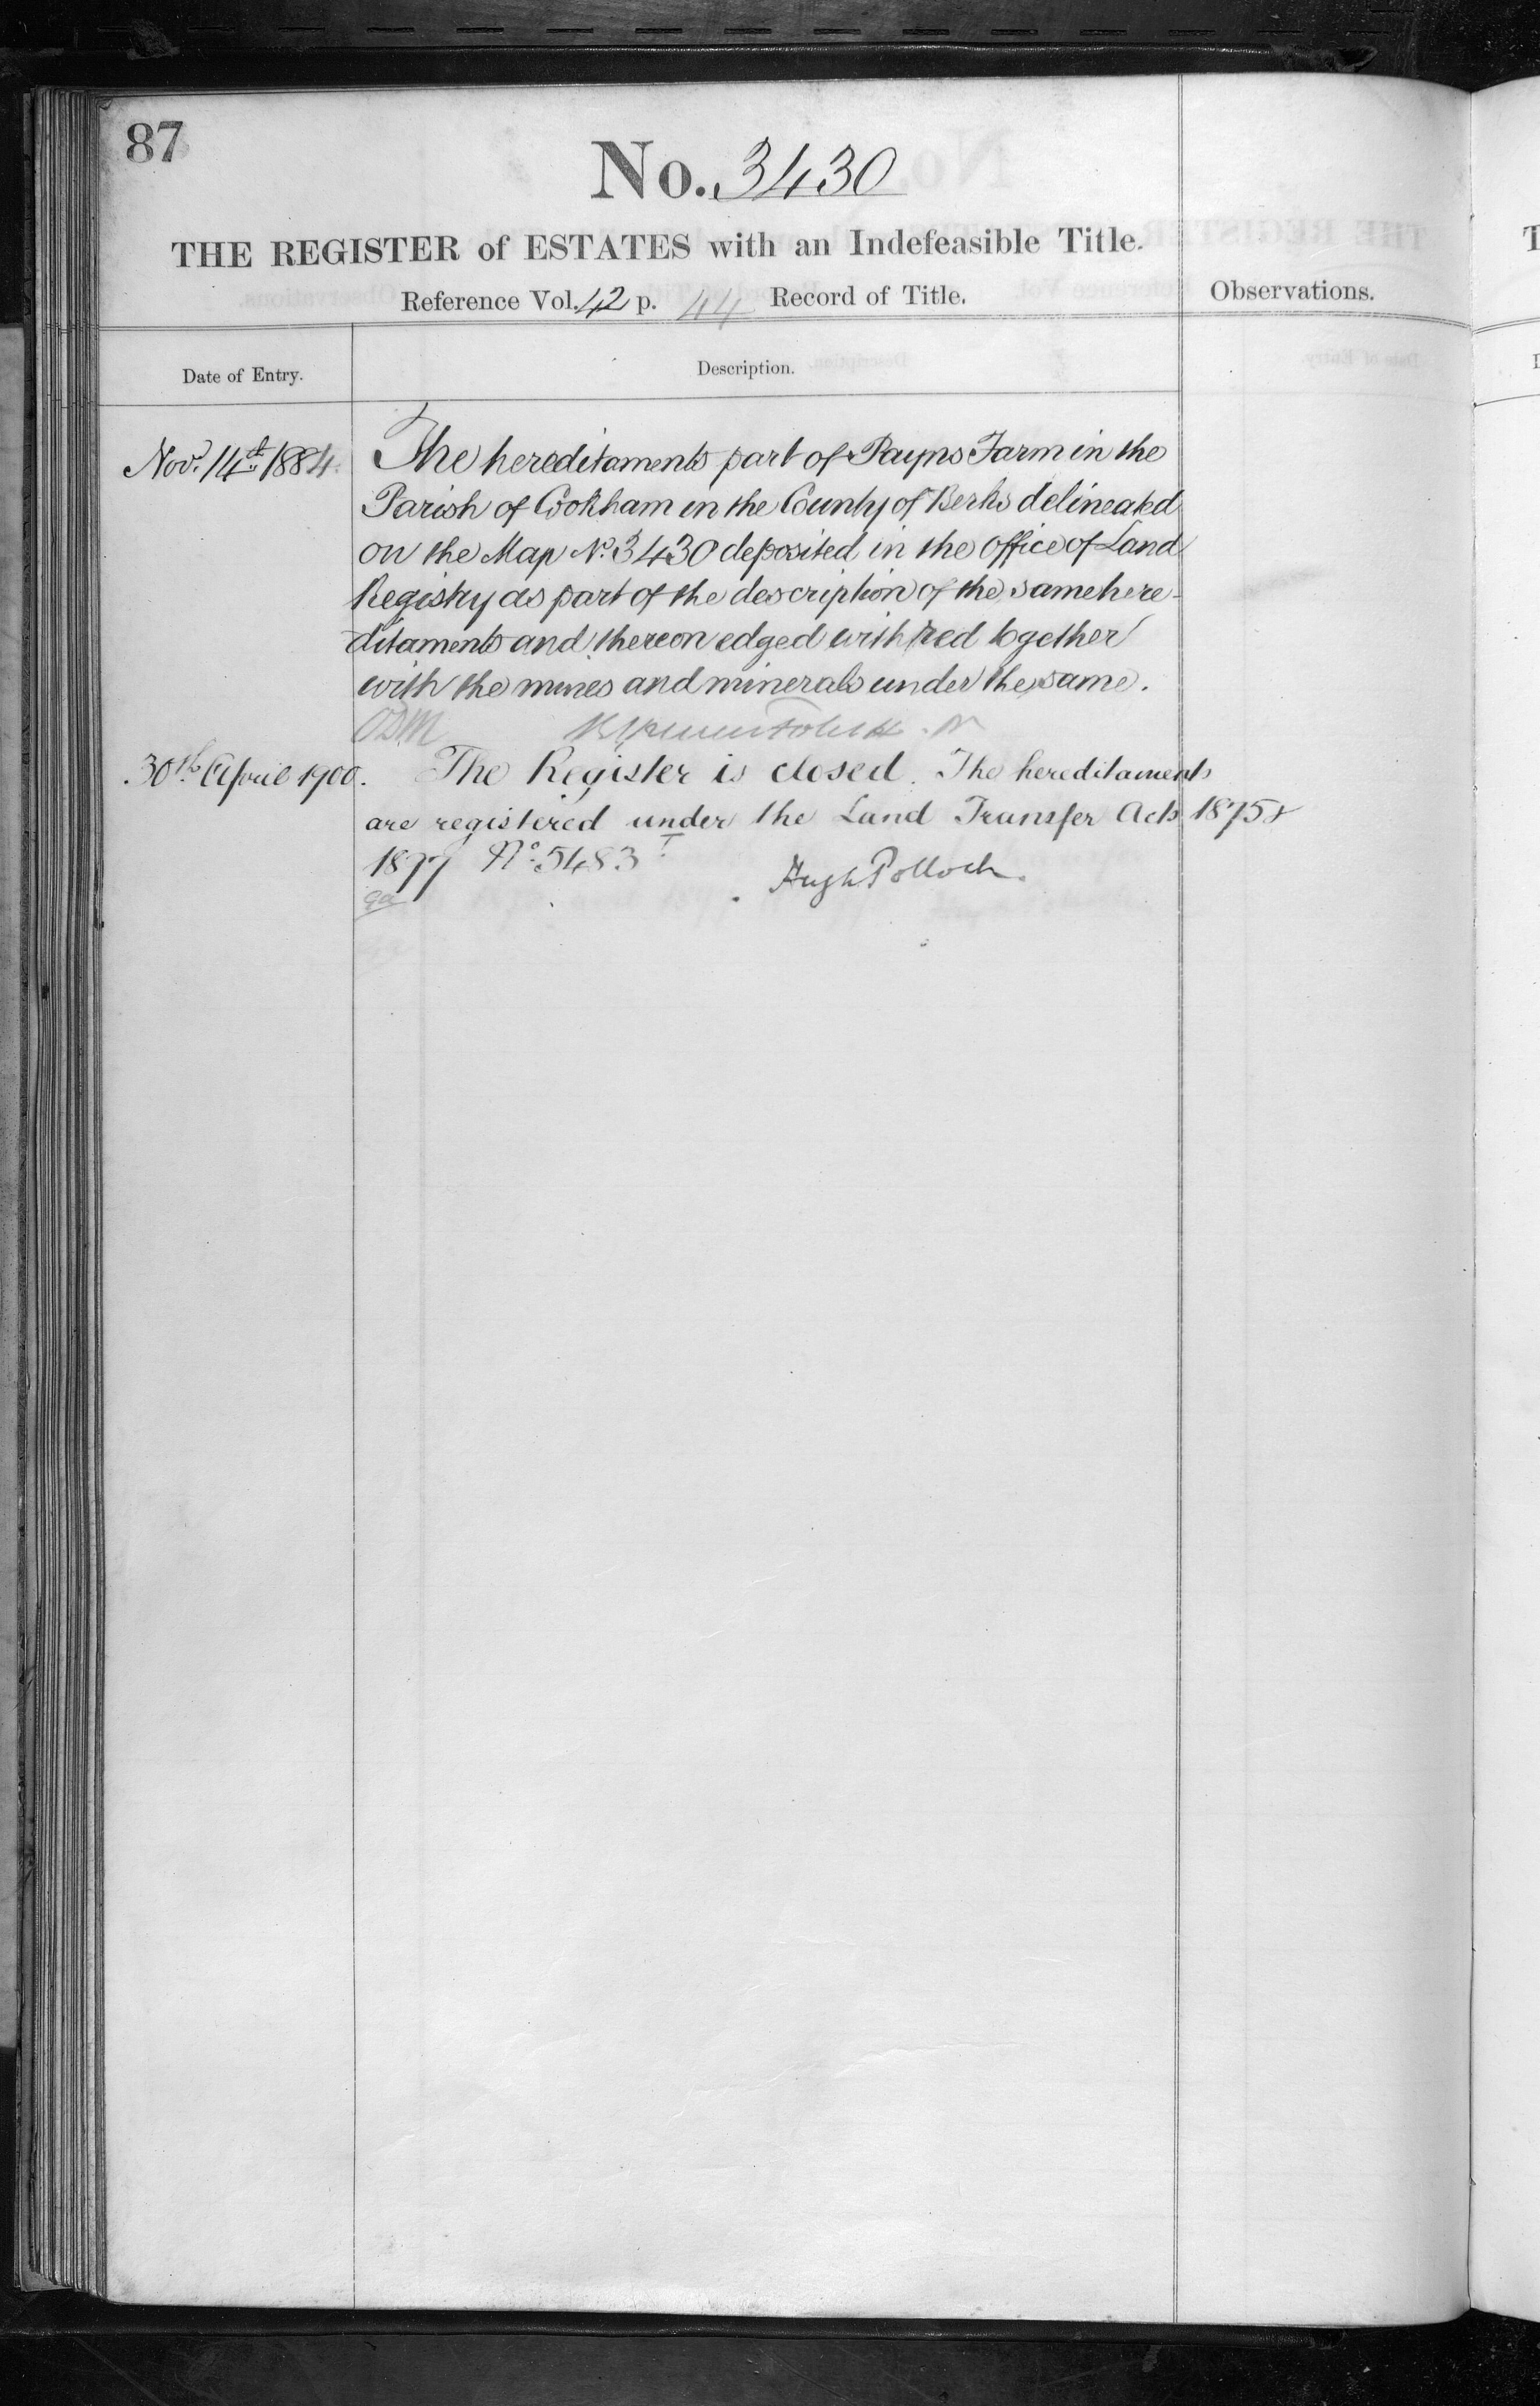 87
No. 3430
THE REGISTER of ESTATES with an Indefeasible Title.
Reference Vol. 42 p. 44 Record of Title.
Observations.
Date of Entry.
Description.
Novr. 14th 1884. The hereditaments part of Payns Farm in the
Parish of Cookham in the County of Berks delineated
on the Map No. 3430 deposited in the Office of Land
Registry as part of the description of the same here-
ditaments and thereon edged with red together
with the mines and minerals under the same.
30th April 1900. The Register is closed. The hereditaments
are registered under the Land Transfer Acts 1875 &
1877 No. 5483
Hugh Pollock.